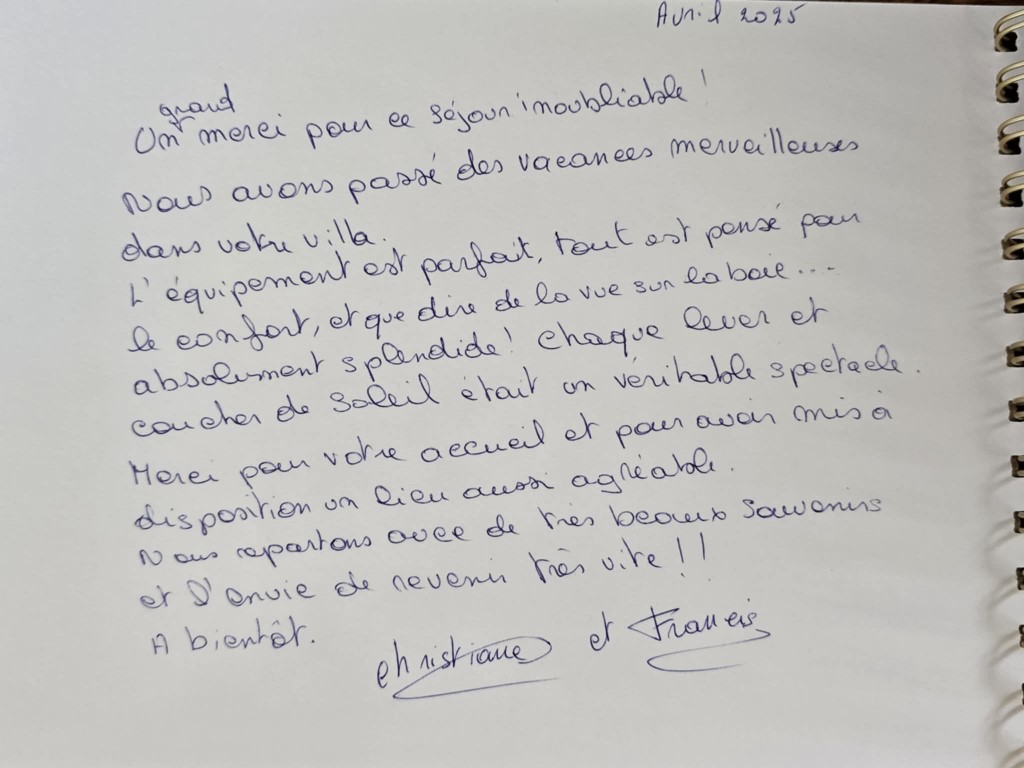 Avril 2025
grand
Un merci pour ce séjour inoubliable !
Nous avons passé des vacances merveilleuses
dans votre villa.
L'équipement est parfait, tout est pensé pour
le confort, et que dire de la vue sur la baie...
absolument splendide ! Chaque lever et
coucher de soleil était un véritable spectacle.
Merci pour votre accueil et pour avoir mis à
disposition un lieu aussi agréable.
Nous repartons avec de très beaux souvenirs
et l'envie de revenir très vite !!
A bientôt.
Christiane et Francis